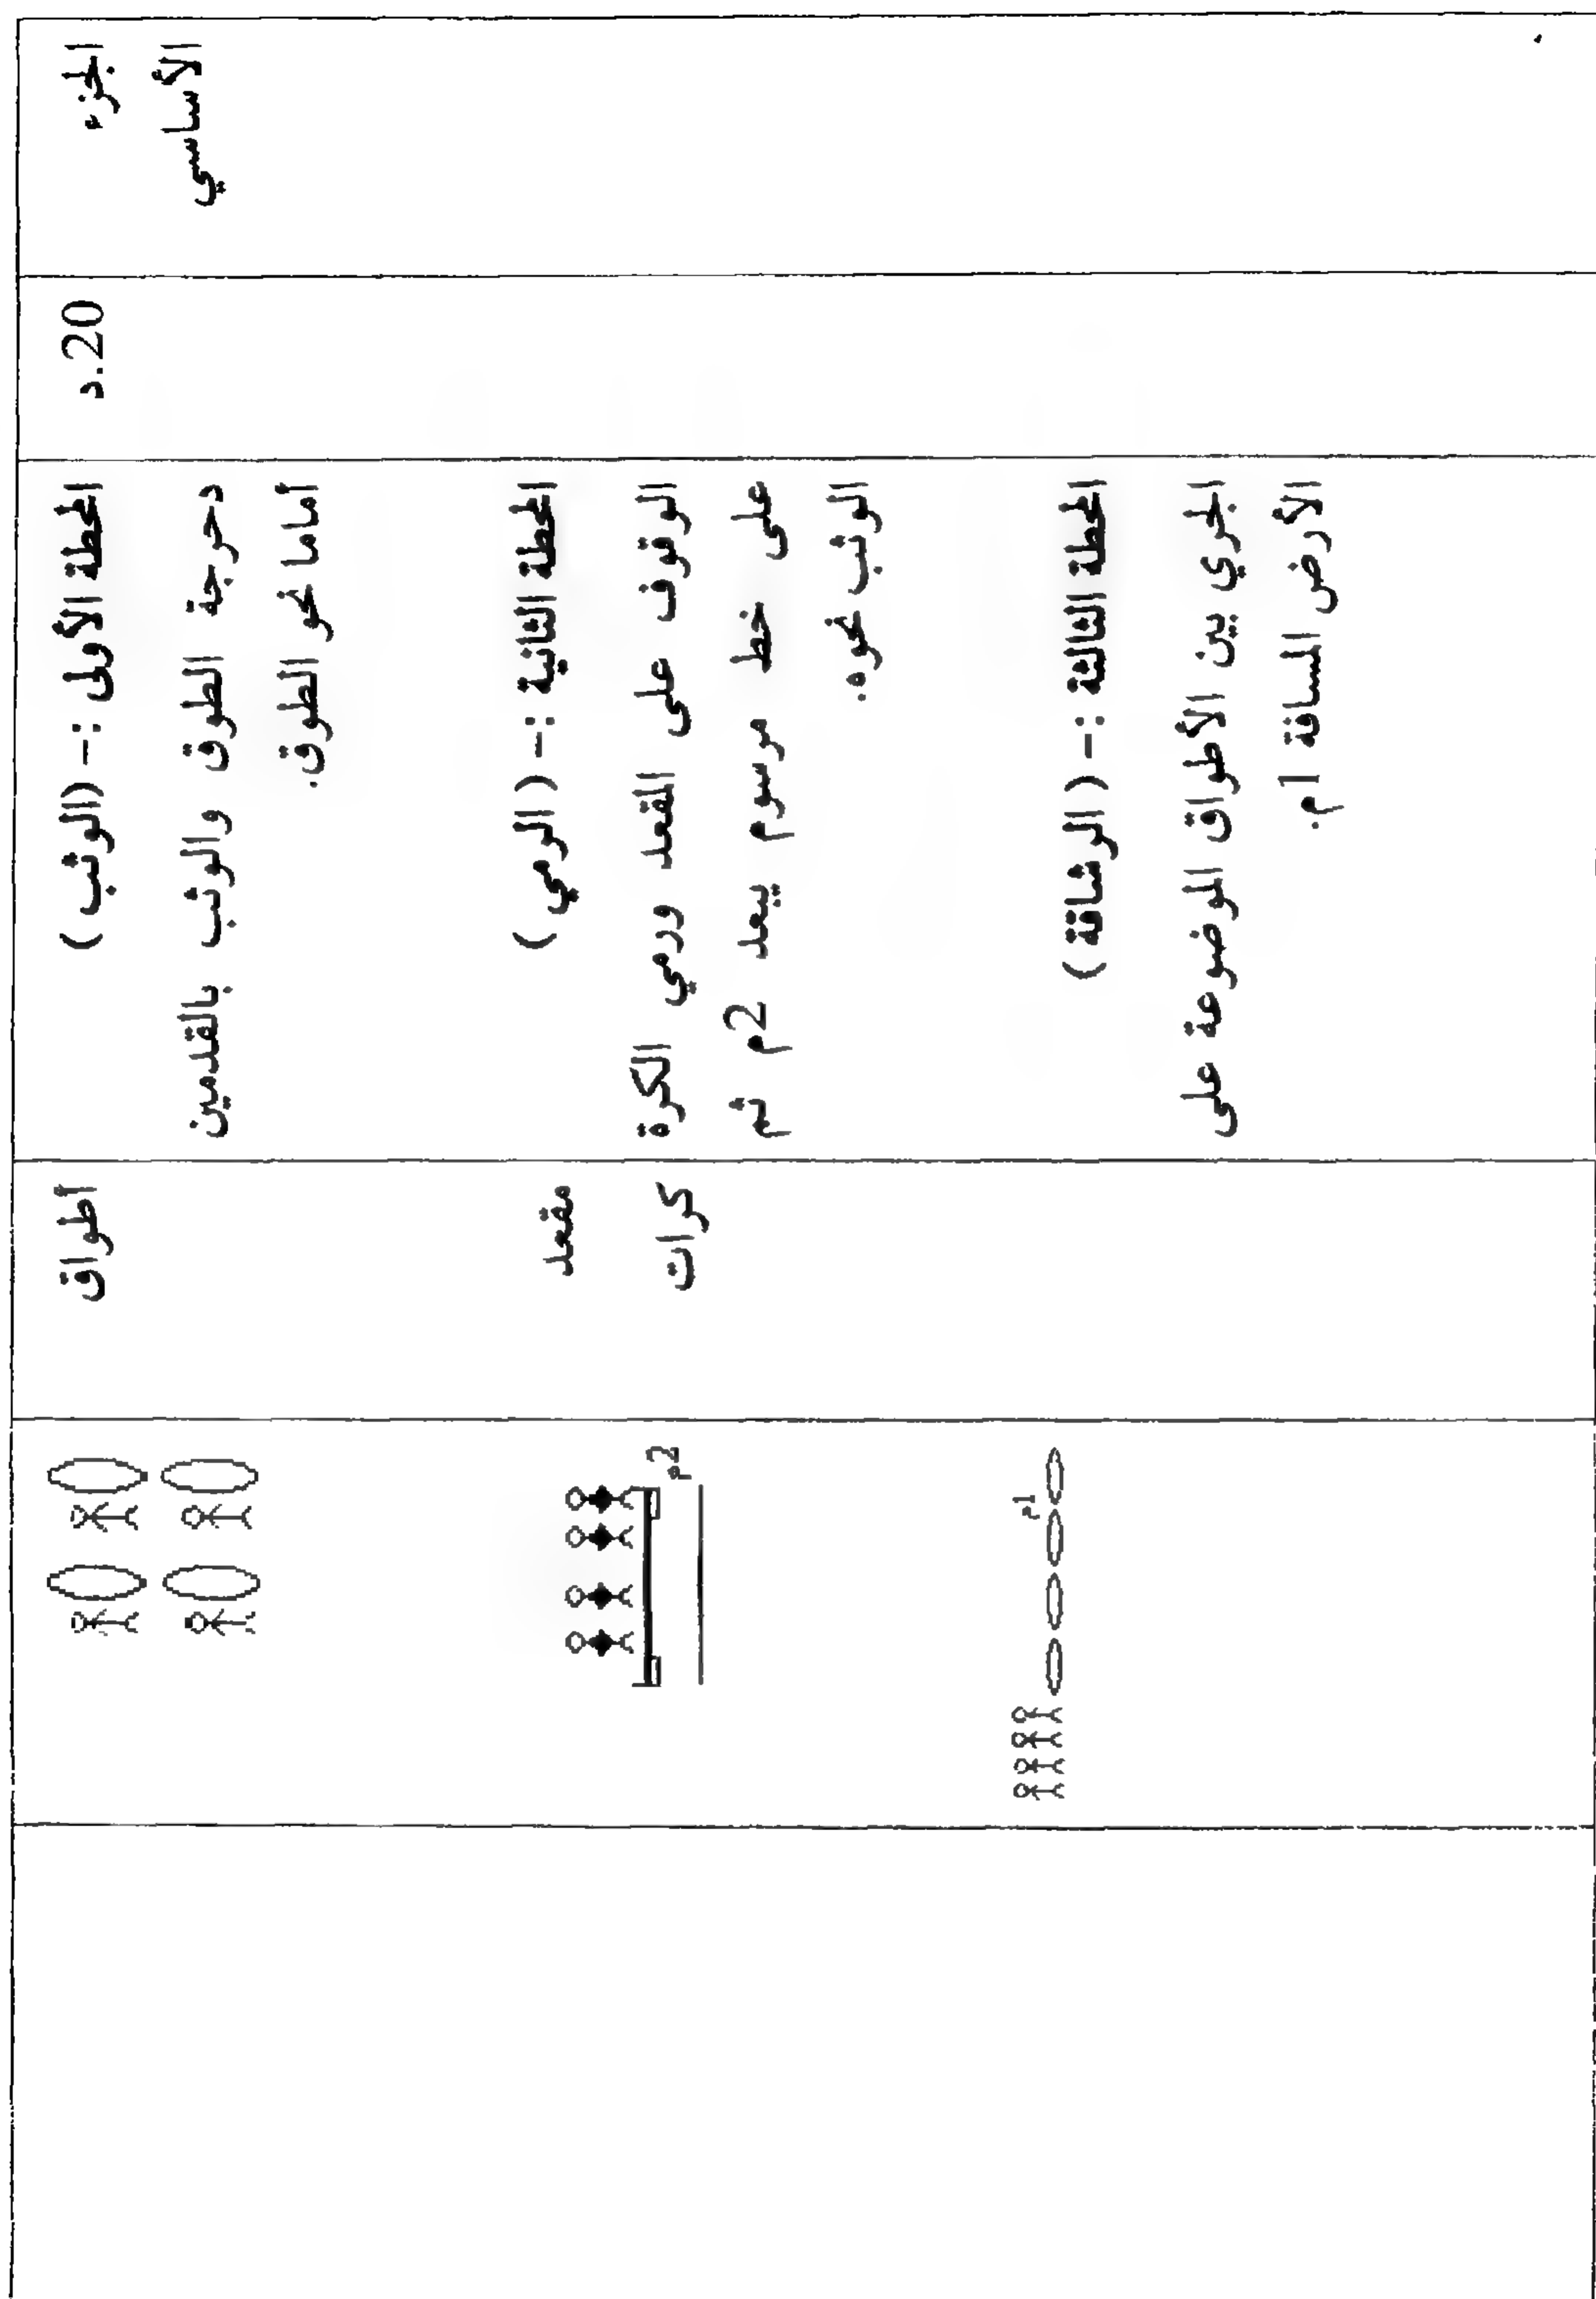 الجزء
الأساسي
20.د
المحطة الأولى :- (الوثب )
دحرجة الطوق والوثب بالقدمين
أماما نحو الطوق.
المحطة الثانية :- ( الرمي )
الوقوف على المقعد ورمي الكرة
على خط مرسوم يبعد 2م ثم
الوثب نحوه.
المحطة الثالثة :- ( الرشاقة )
الجري بين الأطواق الموضوعة على
الأرض المسافة 1م.
أطواق
مقعد
كرات
2م
1م